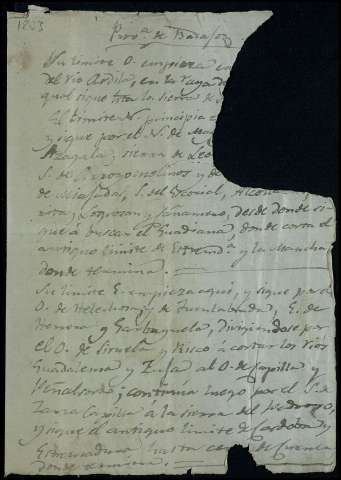 1833
Prov.ª de Badajoz
Su límite O. empieza
del río Ardila, en la raya de
qual sigue toda la sierra de
El límite N. principia
y sigue por el N. de
Azagala; sierra de
S. de Arroyomolinos y de
de Miajadas, S. del Escorial,
Logrosan y Cañamero, desde donde si-
gue á buscar el Guadiana, donde corta el
antiguo límite de Estrem.ª y la Mancha
donde termina.
Su límite E. empieza aqui, y sigue por el
O. de Helechosa y de Fuenlabrada, E. de
Herrera y Garbayuela, Dividiendose por
el O. de Siruela y Risco á cortar los rios
Guadalema y Zuja al O. de Capilla y
Peñalsordo; continúa luego por el S. de
Zarza Capilla á la sierra del Pedroso,
y sigue el antiguo límite de Cordoba y
Estremadura hasta cerca de Cuenca
donde termina.